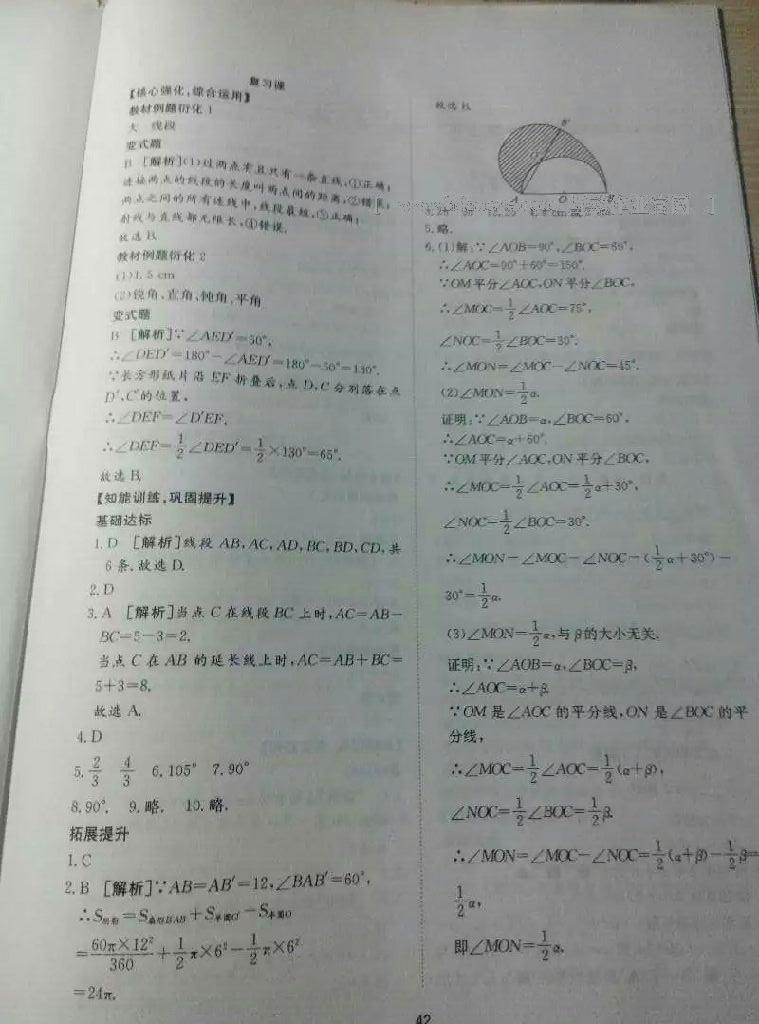 复习课
【核心强化,综合运用】
教材例题衍化 1
大 线段
变式题
B [解析](1)过两点有且只有一条直线,①正确;
连接两点的线段的长度叫两点间的距离,②错误;
两点之间的所有连线中,线段最短,③正确;
射线与直线都无限长,④错误.
故选 B.
教材例题衍化 2
(1)1.5 cm
(2)锐角、直角、钝角、平角
变式题
B [解析]∵∠AED′=50°,
∴∠DED′=180°-∠AED′=180°-50°=130°.
∵长方形纸片沿 EF 折叠后,点 D、C 分别落在点
D′、C′的位置,
∴∠DEF=∠D′EF,
∴∠DEF=1/2∠DED′=1/2×130°=65°.
故选 B.
【知能训练,巩固提升】
基础达标
1. D [解析]线段 AB,AC,AD,BC,BD,CD,共
6 条.故选 D.
2. D
3. A [解析]当点 C 在线段 BC 上时,AC=AB-
BC=5-3=2,
当点 C 在 AB 的延长线上时,AC=AB+BC=
5+3=8,
故选 A.
4. D
5. 2/3 4/3 6. 105° 7. 90°
8. 90° 9. 略. 10. 略.
拓展提升
1. C
2. B [解析]∵AB=AB′=12,∠BAB′=60°,
∴S阴影=S扇形B′AB+S半圆O′-S半圆O
=60π×12²/360+1/2π×6²-1/2π×6²
=24π.
故选 B.
B′
O′
A O B
5. 略.
6. (1)解:∵∠AOB=90°,∠BOC=60°,
∴∠AOC=90°+60°=150°.
∵OM平分∠AOC,ON平分∠BOC,
∴∠MOC=1/2∠AOC=75°,
∠NOC=1/2∠BOC=30°.
∴∠MON=∠MOC-∠NOC=45°.
(2)∠MON=1/2α.
证明:∵∠AOB=α,∠BOC=60°,
∴∠AOC=α+60°.
∵OM平分∠AOC,ON平分∠BOC,
∴∠MOC=1/2∠AOC=1/2α+30°,
∠NOC=1/2∠BOC=30°.
∴∠MON=∠MOC-∠NOC=(1/2α+30°)-
30°=1/2α.
(3)∠MON=1/2α,与β的大小无关.
证明:∵∠AOB=α,∠BOC=β,
∴∠AOC=α+β.
∵OM 是∠AOC 的平分线,ON 是∠BOC 的平
分线,
∴∠MOC=1/2∠AOC=1/2(α+β),
∠NOC=1/2∠BOC=1/2β.
∴∠MON=∠MOC-∠NOC=1/2(α+β)-1/2β=
1/2α,
即∠MON=1/2α.
42